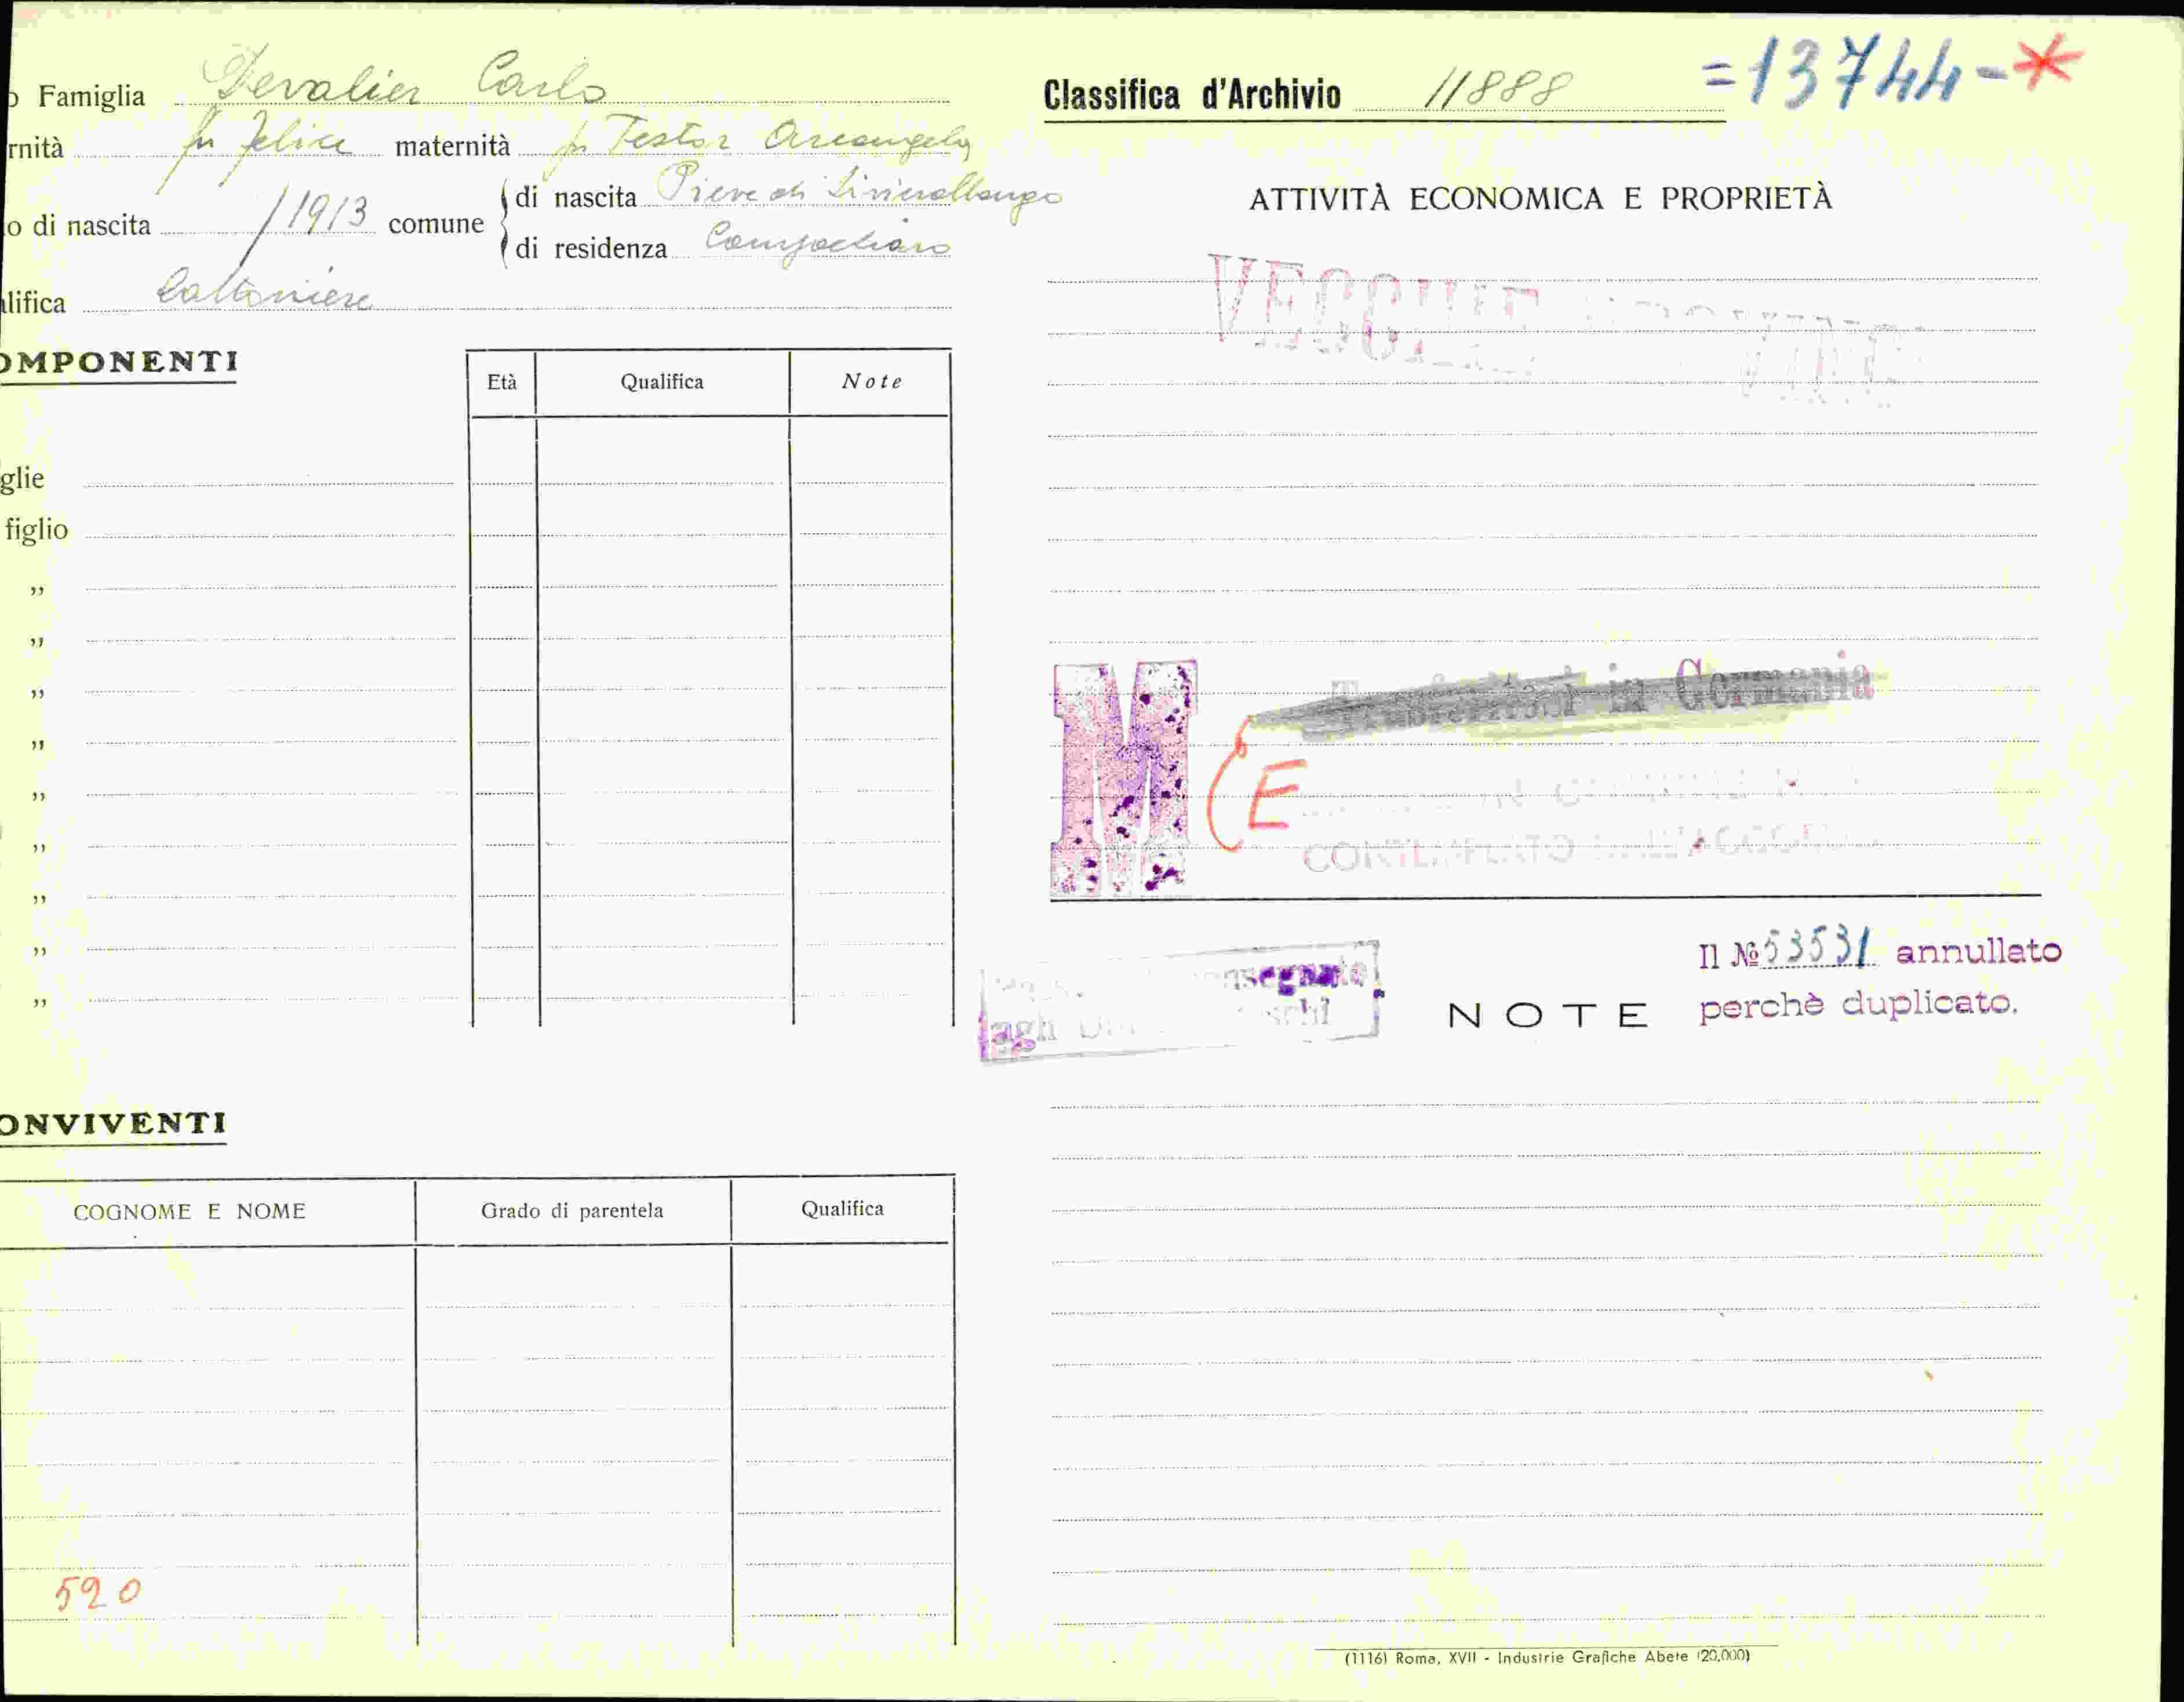 o Famiglia Devalier Carlo
rnità fu Felice maternità fu Testor Arcangela
o di nascita /1913 comune
di nascita Pieve di Livinallongo
di residenza
alifica
OMPONENTI
Età Qualifica Note
glie
figlio
,,
,,
,,
,,
,,
,,
,,
,,
,,
ONVIVENTI
COGNOME E NOME Grado di parentela Qualifica
520
Classifica d'Archivio 11888
=13744-*
ATTIVITÀ ECONOMICA E PROPRIETÀ
VECCHIE
M
in Germania
E
CONTEMPLATO
Il № 53531 annullato
perchè duplicato.
NOTE
(1116) Roma, XVII - Industrie Grafiche Abete (20.000)